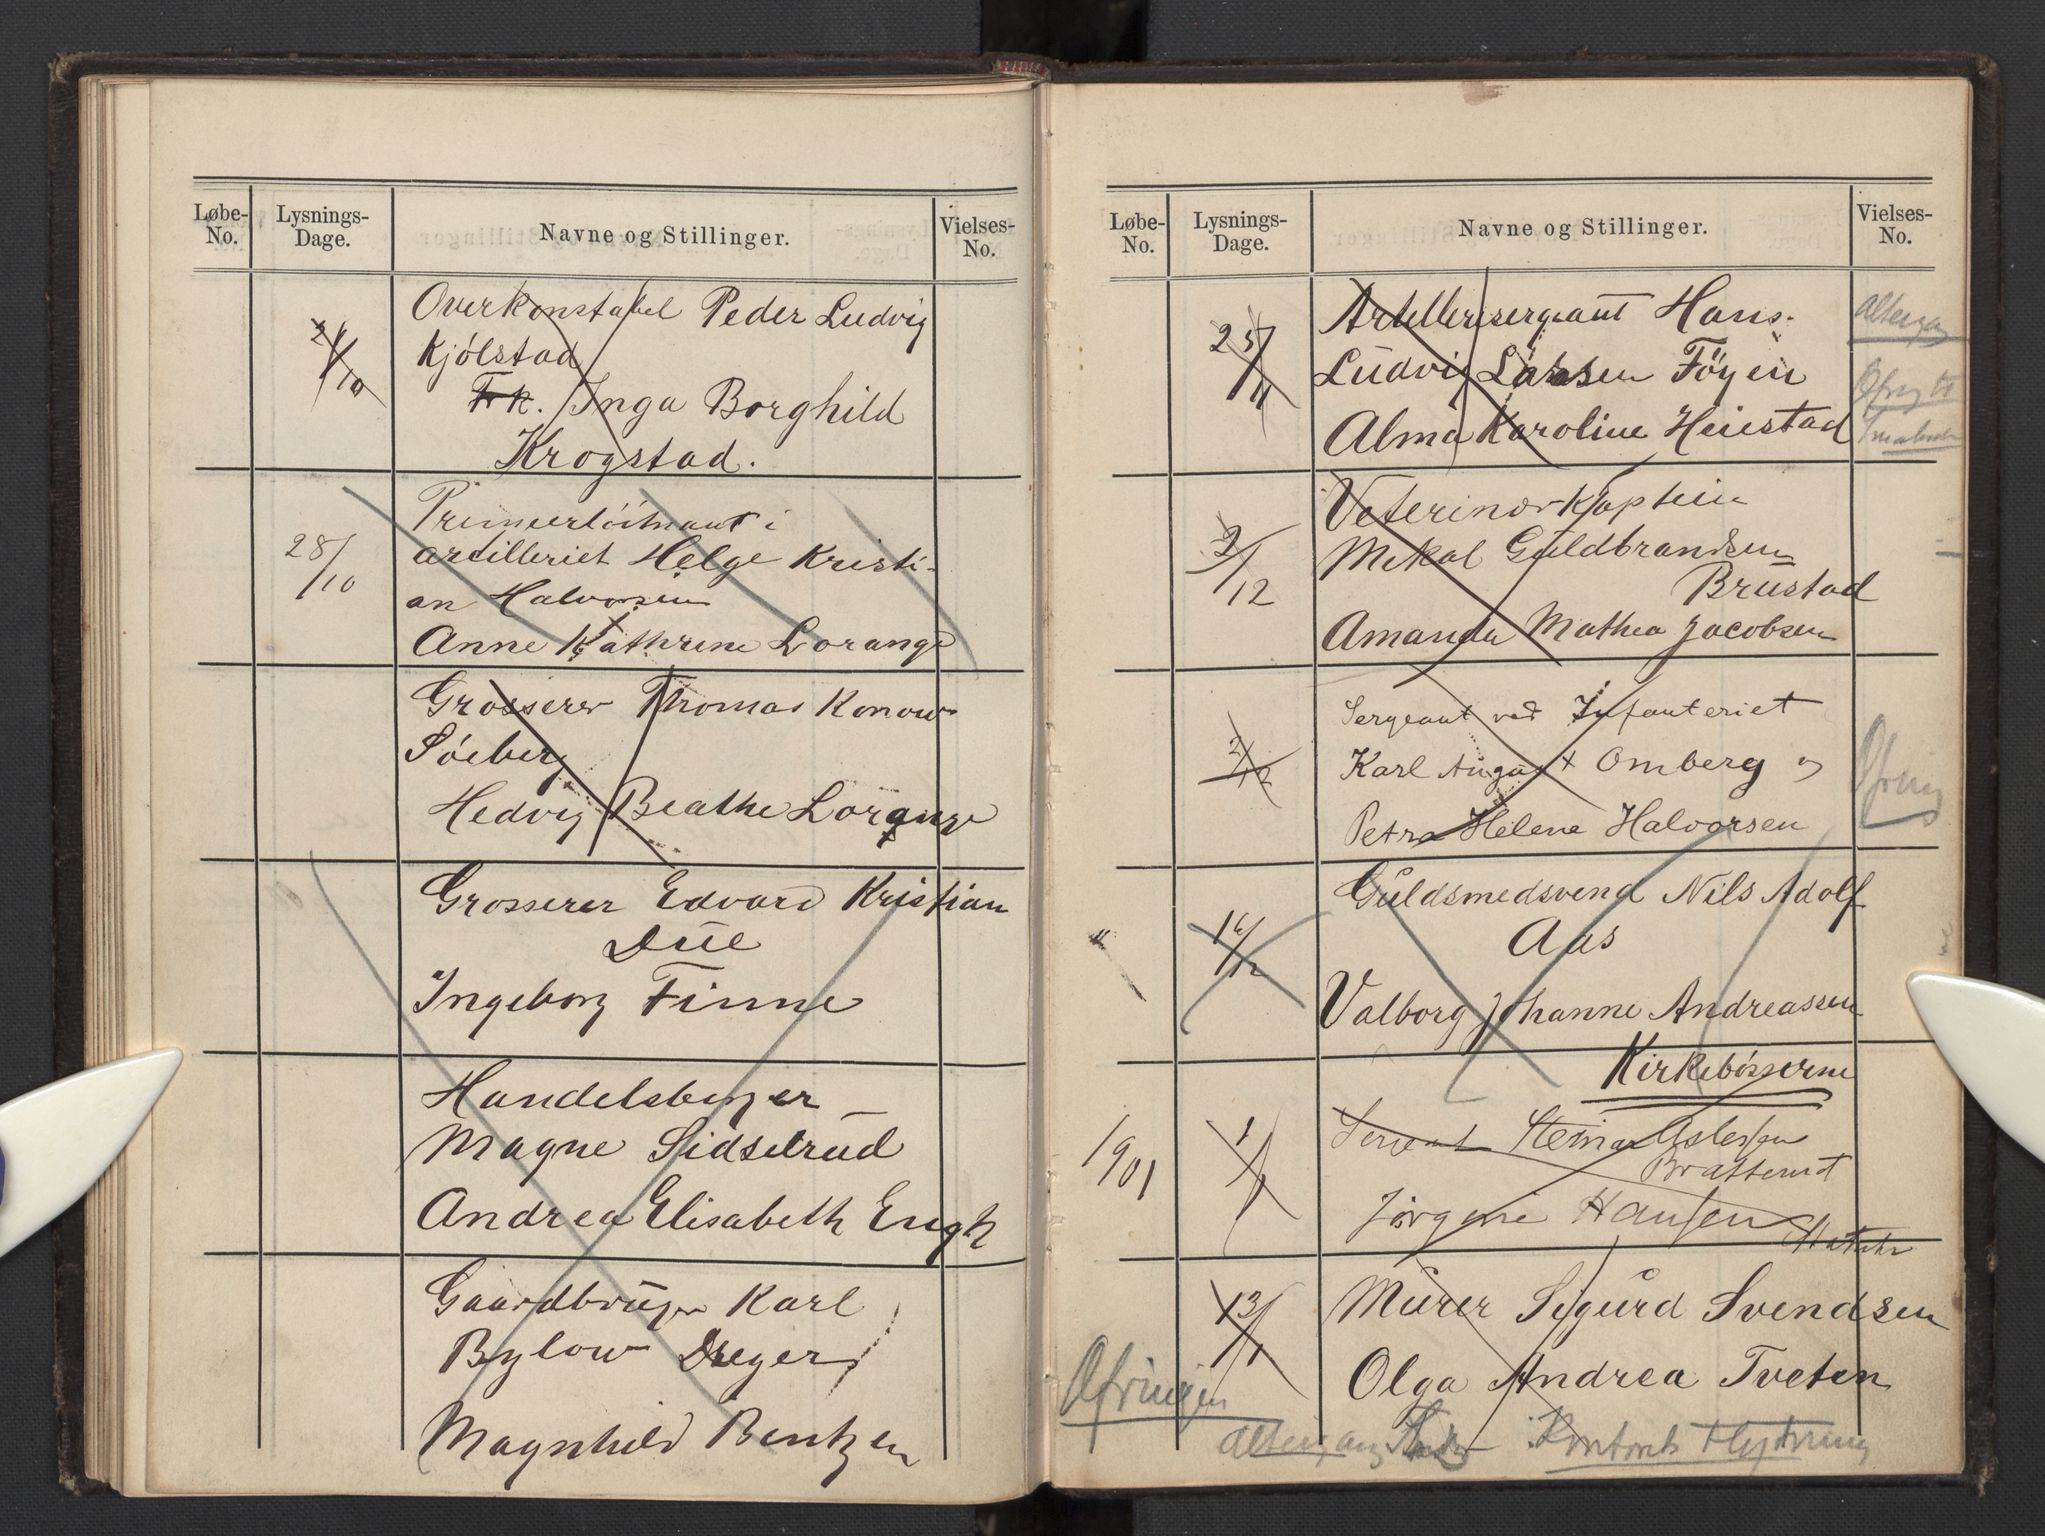 Løbe-No. Lysnings-Dage. Navne og Stillinger. Vielses-No.
Overkonstabel Peder Ludvig
Kjölstad
Frk. Inga Borghild
Krogstad.
28/10
Premierlöitnant i
artilleriet Helge Kristi-
an Halvorsen
Anne Kathrine Lorange
Grosserer Thomas Konow
Söeberg
Hedvig Beathe Lorange
Grosserer Edvard Kristian
Düe
Ingeborg Finne
Handelsberger
Magne Sidselrud
Andrea Elisabeth Engh
Gaardbruger Karl
Bylow Dreyer
Magnhild Bentzen
Løbe-No. Lysnings-Dage. Navne og Stillinger. Vielses-No.
25/11
Artillerisergeant Hans
Ludvig Larsen Föyen
Alma Karoline Heiestad
Altergang
2/12
Veterinærkaptein
Mikal Guldbrandsen
Brustad
Amanda Mathea Jacobsen
2/12
Sergeant ved Infanteriet
Karl August Omberg og
Petra Helene Halvorsen
Ofring
16/12
Guldsmedsvend Nils Adolf
Aas
Valborg Johanne Andreassen
Kirkebösserne
1901
1/1
Sergeant Steinar Aslessen
Jörgine Hansen
13/1
Murer Sigurd Svendsen
Olga Andrea Tveten
Ofringen
Altergang